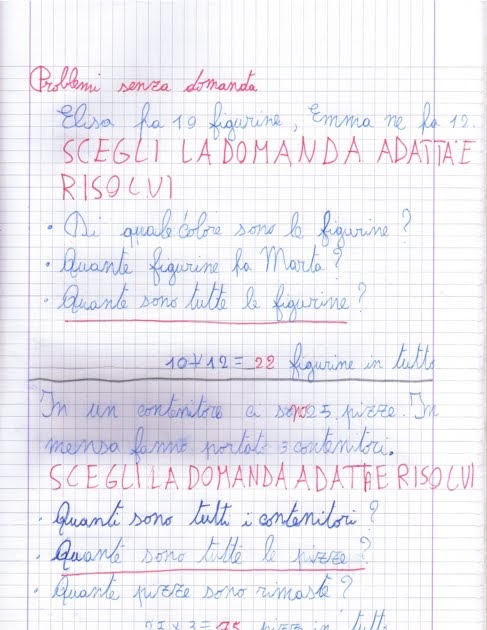 Problemi senza domanda
Elisa ha 10 figurine, Emma ne ha 12.
SCEGLI LA DOMANDA ADATTA E
RISOLVI
• Di quale colore sono le figurine?
• Quante figurine ha Marta?
• Quante sono tutte le figurine?
10+12=22 figurine in tutto
In un contenitore ci sono 25 pizze. In
mensa hanno portato 3 contenitori.
SCEGLI LA DOMANDA ADATTA E RISOLVI
• Quanti sono tutti i contenitori?
• Quante sono tutte le pizze?
• Quante pizze sono rimaste?
25×3=75 pizze in tutto